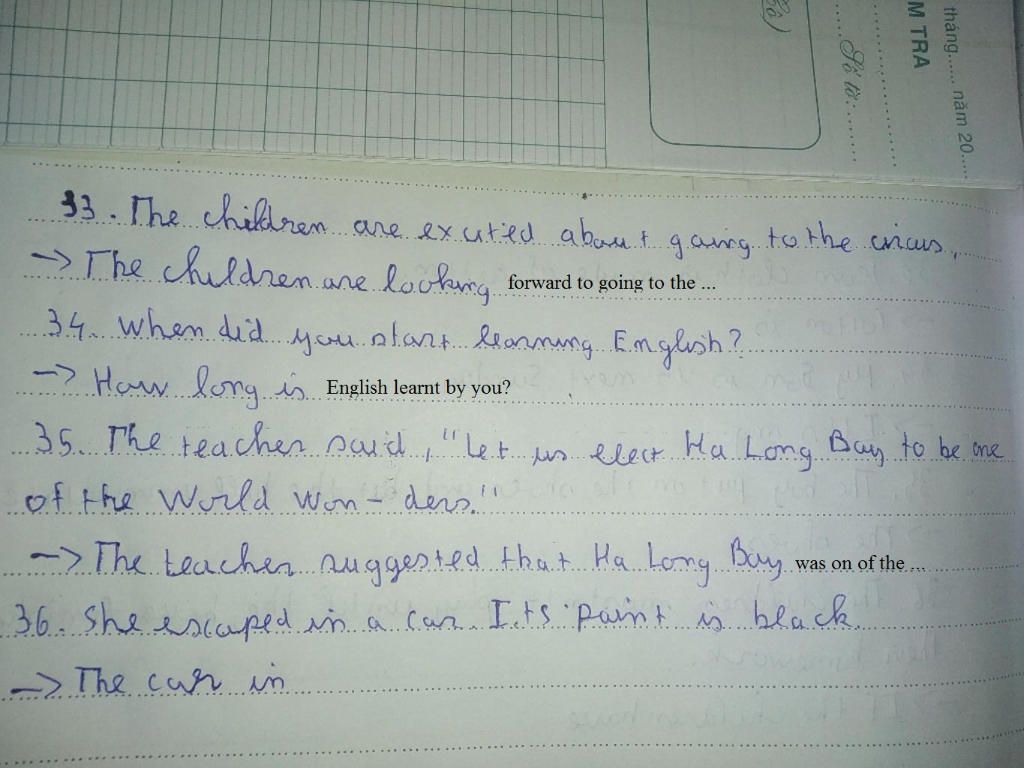 tháng...... năm 20......
M TRA
Số tờ:..........
33. The children are excited about going to the circus.
-> The children are looking forward to going to the ...
34. When did you start learning English?
-> How long is English learnt by you?
35. The teacher said, "Let us elect Ha Long Bay to be one
of the World Won-ders."
-> The teacher suggested that Ha Long Bay was on of the ...
36. She escaped in a car. Its paint is black.
-> The car in